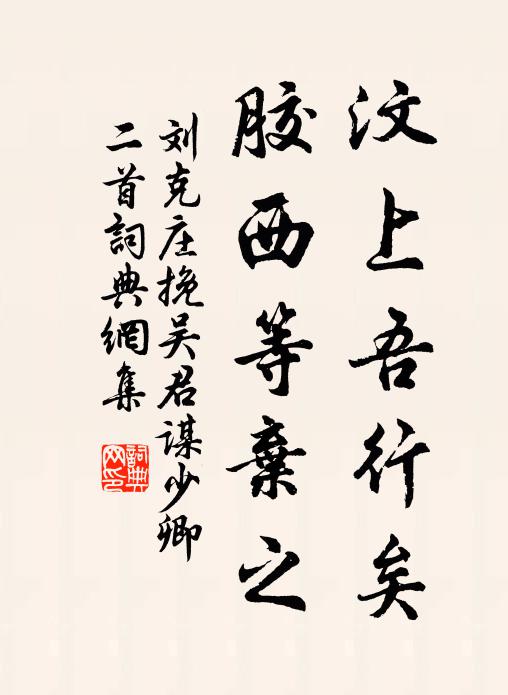 汶上吾行矣
胶西等棄之
刘克庄挽吴君谋少卿
二首詞典網集
詞典
网印